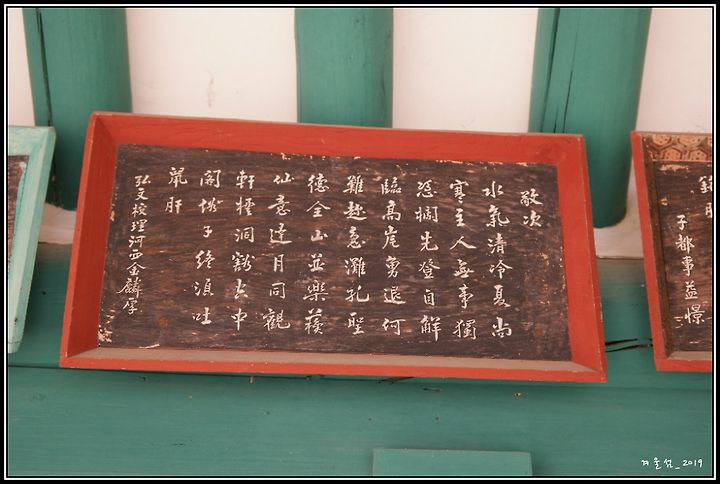 敬次
水氣清冷夏尚
寒主人無事獨
欄先登自鮮
臨高崖勇退何
難趁急灘孔聖
德全山並樂蘇
仙意達月同觀
軒楹洞豁玄中
子終須吐
鼠肝
弘文校理河西金麟厚
肝
子都事益憬
겨울섬_2019